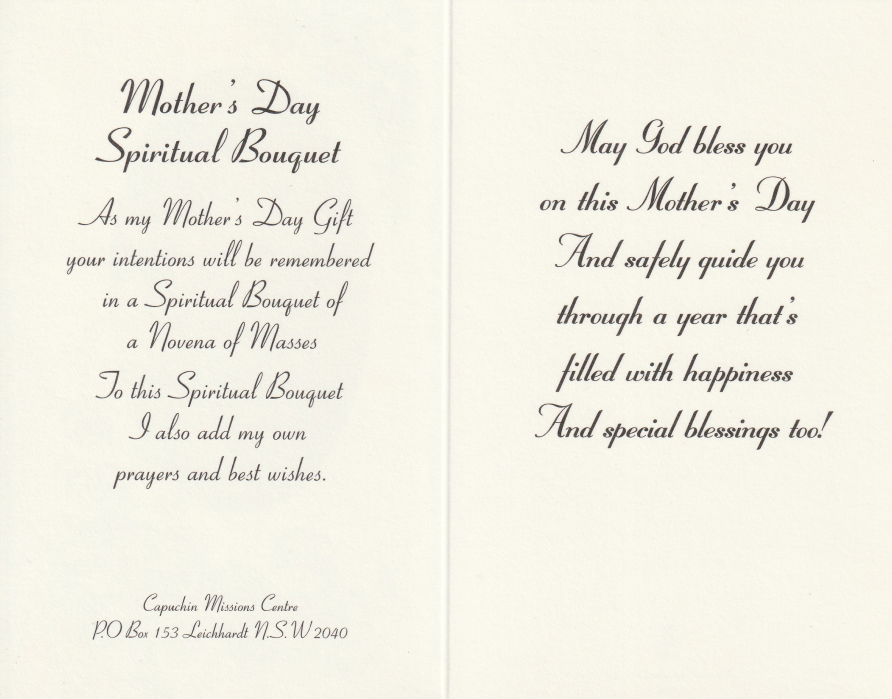 Mother's Day
Spiritual Bouquet
As my Mother's Day Gift
your intentions will be remembered
in a Spiritual Bouquet of
a Novena of Masses
To this Spiritual Bouquet
I also add my own
prayers and best wishes.
Capuchin Missions Centre
P.O Box 153 Leichhardt N.S.W 2040
May God bless you
on this Mother's Day
And safely guide you
through a year that's
filled with happiness
And special blessings too!